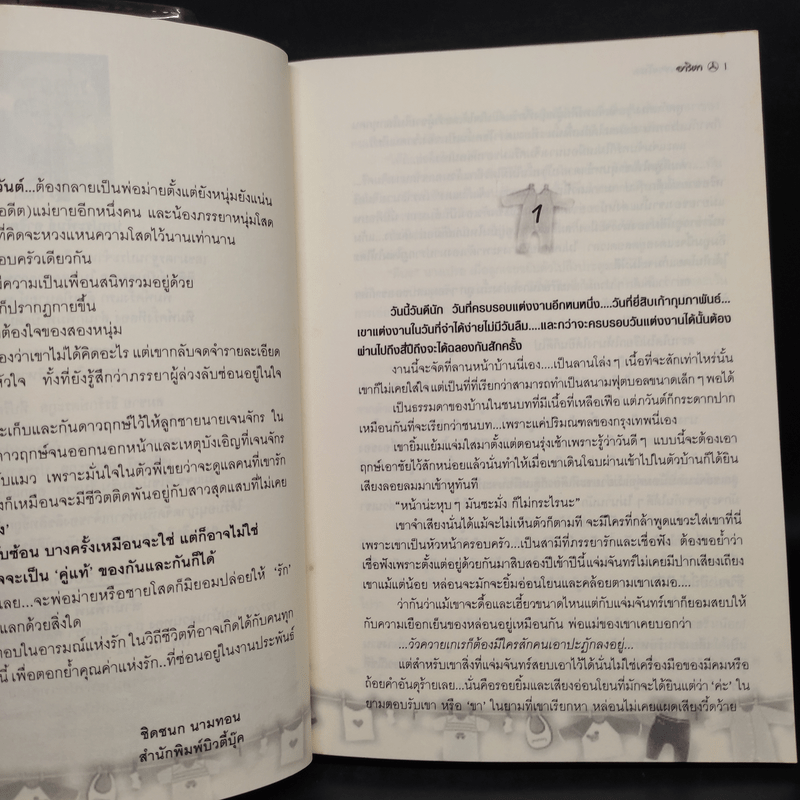 วันต์...ต้องกลายเป็นพ่อม่ายตั้งแต่ยังหนุ่มยังแน่น
อดีต)แม่ยายอีกหนึ่งคน และน้องภรรยาหนุ่มโสด
ที่คิดจะหวงแหนความโสดไว้นานเท่านาน
อบครัวเดียวกัน
มีความเป็นเพื่อนสนิทรวมอยู่ด้วย
ก็ปรากฏกายขึ้น
ต้องใจของสองหนุ่ม
องว่าเขาไม่ได้คิดอะไร แต่เขากลับจดจำรายละเอียด
หัวใจ ทั้งที่ยังรู้สึกว่าภรรยาผู้ล่วงลับซ่อนอยู่ในใจ
จะเก็บและกันดาวฤกษ์ไว้ให้ลูกชายนายเจนจักร ใน
าวฤกษ์จนออกนอกหน้าและเหตุบังเอิญที่เจนจักร
กับแมว เพราะมั่นใจในตัวพี่เขยว่าจะดูแลคนที่เขารัก
งก็เหมือนจะมีชีวิตติดพันอยู่กับสาวสุดแสบที่ไม่เคย
ง'
ับซ้อน บางครั้งเหมือนจะใช่ แต่ก็อาจไม่ใช่
าจจะเป็น 'คู่แท้' ของกันและกันก็ได้
เลย...จะพ่อม่ายหรือชายโสดก็มิยอมปล่อยให้ 'รัก'
แลกด้วยสิ่งใด
ตอบในอารมณ์แห่งรัก ในวิถีชีวิตที่อาจเกิดได้กับคนทุก
นี้ เพื่อตอกย้ำคุณค่าแห่งรัก..ที่ซ่อนอยู่ในงานประพันธ์
ชิดชนก นามทอน
สำนักพิมพ์บิวตี้บุ๊ค
อาริตา 1
1
วันนี้วันดีนัก วันที่ครบรอบแต่งงานอีกหนหนึ่ง....วันที่ยี่สิบเก้ากุมภาพันธ์...
เขาแต่งงานในวันที่จำได้ง่ายไม่มีวันลืม....และกว่าจะครบรอบวันแต่งงานได้นั้นต้อง
ผ่านไปถึงสี่ปีถึงจะได้ฉลองกันสักครั้ง
งานนี้จะจัดที่ลานหน้าบ้านนี่เอง....เป็นลานโล่งๆ เนื้อที่จะสักเท่าไหร่นั้น
เขาก็ไม่เคยใส่ใจ แต่เป็นที่ที่เรียกว่าสามารถทำเป็นสนามฟุตบอลขนาดเล็กๆ พอได้
เป็นธรรมดาของบ้านในชนบทที่มีเนื้อที่เหลือเฟือ แต่ภวันต์ก็กระดากปาก
เหมือนกันที่จะเรียกว่าชนบท...เพราะแค่ปริมณฑลของกรุงเทพนี่เอง
เขายิ้มแย้มแจ่มใสมาตั้งแต่ตอนรุ่งเช้าเพราะรู้ว่าวันดีๆ แบบนี้จะต้องเอา
ฤกษ์เอาชัยไว้สักหน่อยแล้วนั่นทำให้เมื่อเขาเดินโฉบผ่านเข้าไปในตัวบ้านก็ได้ยิน
เสียงลอยลมมาเข้าหูทันที
"หน้าน่ะหุบๆ มันซะมั่ง ก็ไม่กระไรนะ"
เขาจำเสียงนั่นได้แม้จะไม่เห็นตัวก็ตามที จะมีใครที่กล้าพูดแขวะใส่เขาที่นี่
เพราะเขาเป็นหัวหน้าครอบครัว...เป็นสามีที่ภรรยารักและเชื่อฟัง ต้องขอย้ำว่า
เชื่อฟังเพราะตั้งแต่อยู่ด้วยกันมาสิบสองปีเข้าปีนี้แจ่มจันทร์ไม่เคยมีปากเสียงเถียง
เขาแม้แต่น้อย หล่อนจะมักจะยิ้มอ่อนโยนและคล้อยตามเขาเสมอ....
ว่ากันว่าแม้เขาจะดื้อและเฮี้ยวขนาดไหนแต่กับแจ่มจันทร์เขาก็ยอมสยบให้
กับความเยือกเย็นของหล่อนอยู่เหมือนกัน พ่อแม่ของเขาเคยบอกว่า
...วัวควายเกเรก็ต้องมีใครสักคนเอาปะฏักลงอยู่...
แต่สำหรับเขาสิ่งที่แจ่มจันทร์สยบเอาไว้ได้นั่นไม่ใช่เครื่องมือของมีคมหรือ
ถ้อยคำอันดุร้ายเลย...นั่นคือรอยยิ้มและเสียงอ่อนโยนที่มักจะได้ยินแต่ว่า 'ค่ะ' ใน
ยามตอบรับเขา หรือ 'ขา' ในยามที่เขาเรียกหา หล่อนไม่เคยแผดเสียงวี้ดว้าย